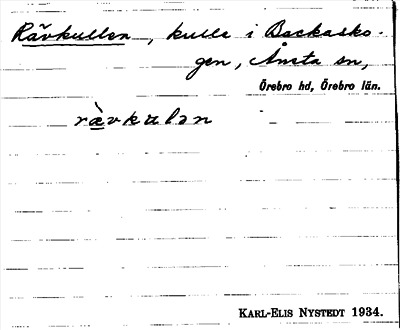 Rävkullen, kulle i Backasko-
gen, Ånsta sn,
Örebro hd, Örebro län.
rævkulən
KARL-ELIS NYSTEDT 1934.